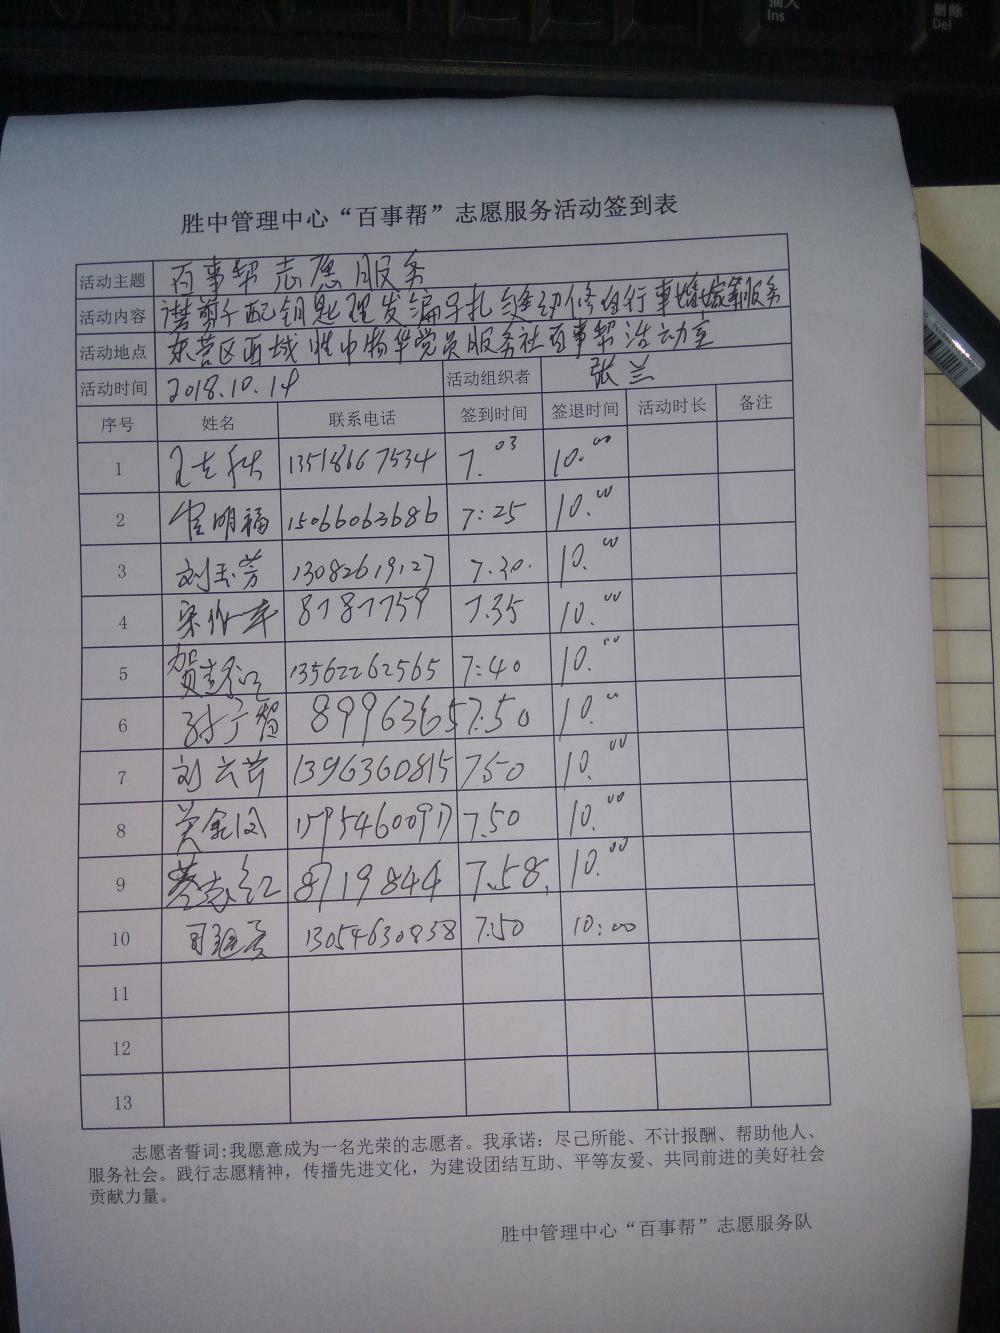 插入
Ins
删除
Del
胜中管理中心“百事帮”志愿服务活动签到表
活动主题 百事帮志愿服务
活动内容 磨剪子配钥匙理发编手扎缝幼修自行事婚嫁等服务
活动地点 东营区西城胜中物华党员服务社百事帮活动室
活动时间 2018.10.14 活动组织者 张兰
序号 姓名 联系电话 签到时间 签退时间 活动时长 备注
1 13518667534 7.03 10.00
2 管明福 15066063686 7:25 10.00
3 刘玉芳 13082619127 7.30. 10.00
4 宋作幸 8787759 7.35 10.00
5 13562262565 7:40 10.00
6 孙广智 8996365 7:50 10.00
7 刘云芹 1396360815 7.50 10.00
8 15954600917 7.50 10.00
9 8719844 7.58. 10.00
10 13054630838 7.50 10:00
11
12
13
志愿者誓词:我愿意成为一名光荣的志愿者。我承诺：尽己所能、不计报酬、帮助他人、
服务社会。践行志愿精神，传播先进文化，为建设团结互助、平等友爱、共同前进的美好社会
贡献力量。
胜中管理中心“百事帮”志愿服务队